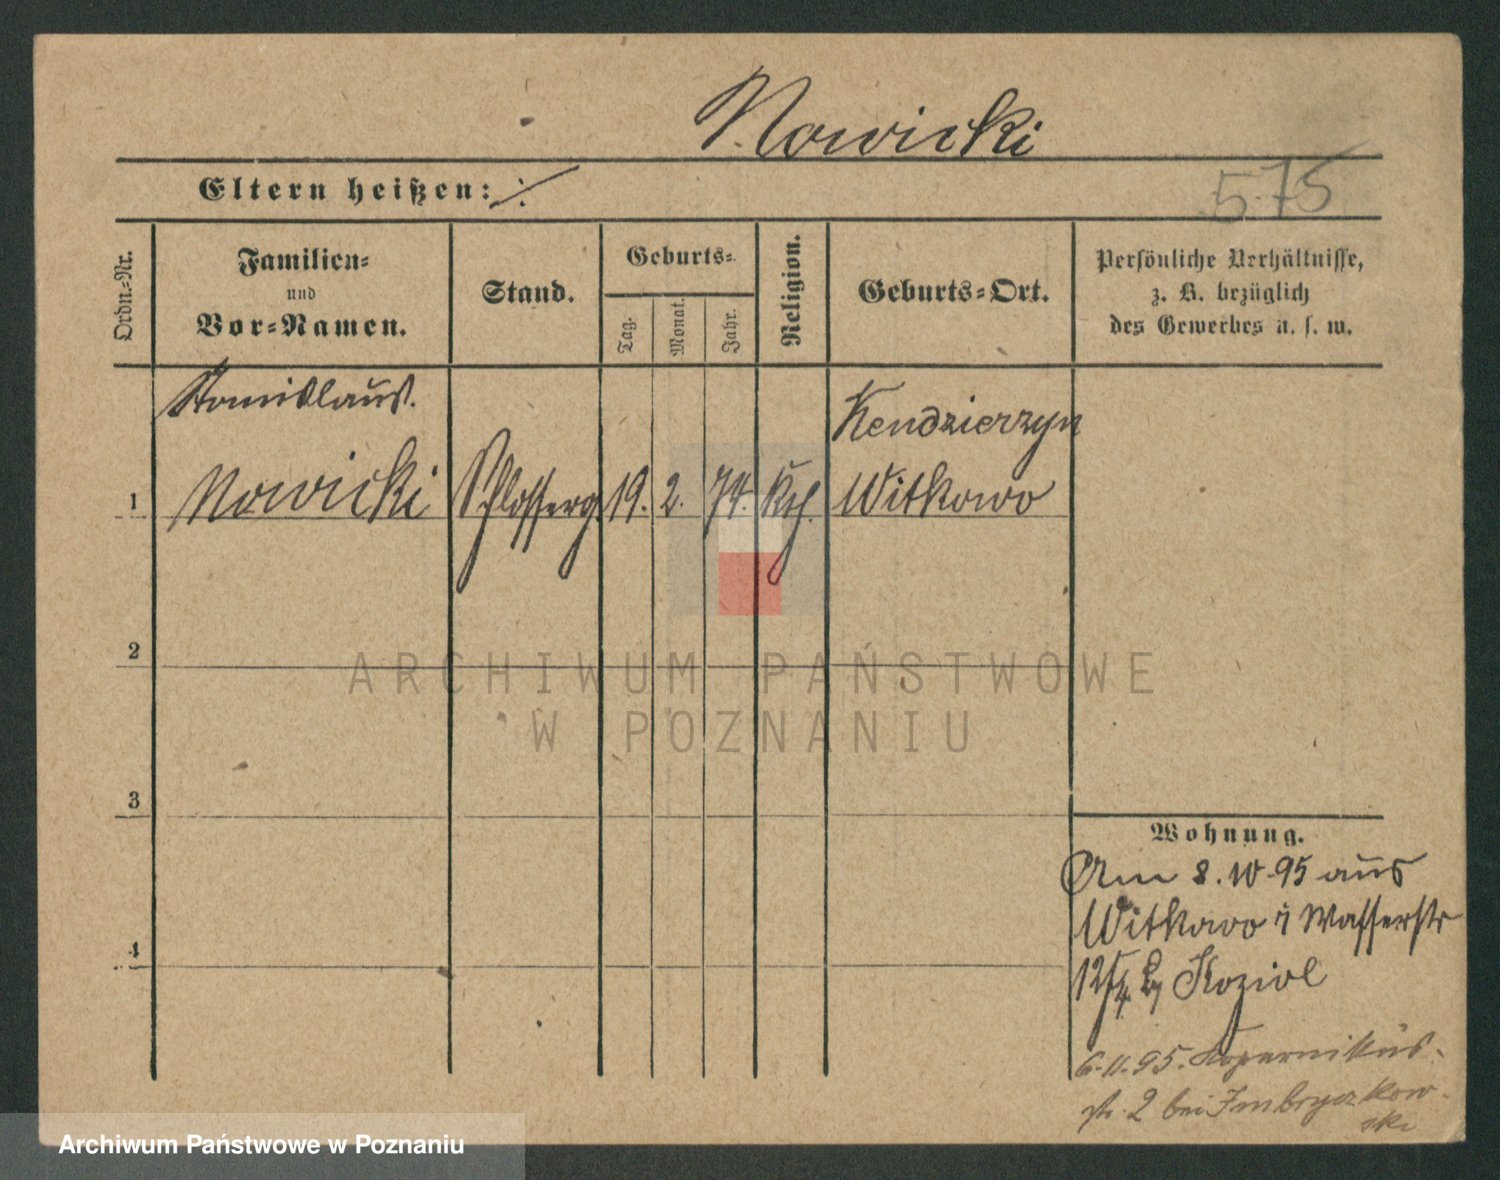 Nowicki
Eltern heißen: ⁒
575
Ordn.-Nr.
Familien-
und
Vor-Namen.
Stand.
Geburts-
Tag.
Monat.
Jahr.
Religion.
Geburts-Ort.
Persönliche Verhältnisse,
z. B. bezüglich
des Gewerbes u. s. w.
Stanislaus.
Kendzierzyn
1 Nowicki Schlosserg. 19. 2. 74. kth. Witkowo
2
ARCHIWUM PAŃSTWOWE
W POZNANIU
3
4
Wohnung.
Am 8.10.95 aus
Witkowo i Wasserstr
12/4 b/ Koziol
6.11.95. Kopernikus-
str. 2 bei Imbryczkow-
ski
Archiwum Państwowe w Poznaniu